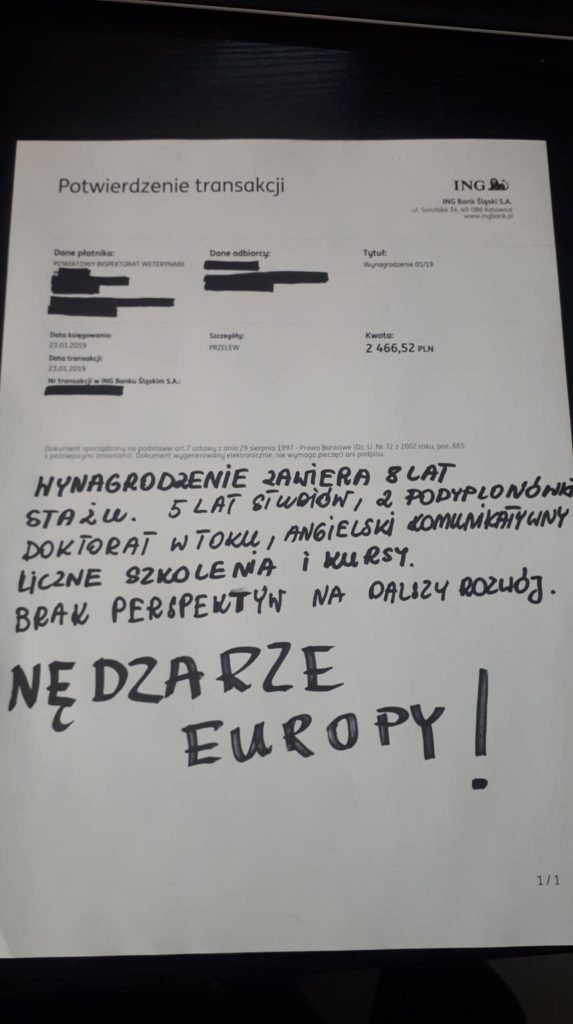 Potwierdzenie transakcji
ING
ING Bank Śląski S.A.
ul. Sokolska 34, 40-086 Katowice
www.ingbank.pl
Dane płatnika:
POWIATOWY INSPEKTORAT WETERYNARII
Dane odbiorcy:
Tytuł:
Wynagrodzenie 01/19
Data księgowania:
23.01.2019
Data transakcji:
23.01.2019
Nr transakcji w ING Banku Śląskim S.A.:
Szczegóły:
PRZELEW
Kwota:
2 466,52 PLN
Dokument sporządzony na podstawie art.7 ustawy z dnia 29 sierpnia 1997 - Prawo Bankowe (Dz. U. Nr 72 z 2002 roku, poz. 665
z późniejszymi zmianami). Dokument wygenerowany elektronicznie, nie wymaga pieczęci ani podpisu.
WYNAGRODZENIE ZAWIERA 8 LAT
STAŻU. 5 LAT STUDIÓW, 2 PODYPLONÓWKI
DOKTORAT W TOKU, ANGIELSKI KOMUNIKATYWNY
LICZNE SZKOLENIA I KURSY.
BRAK PERSPEKTYW NA DALSZY ROZWÓJ.
NĘDZARZE
EUROPY!
1/1